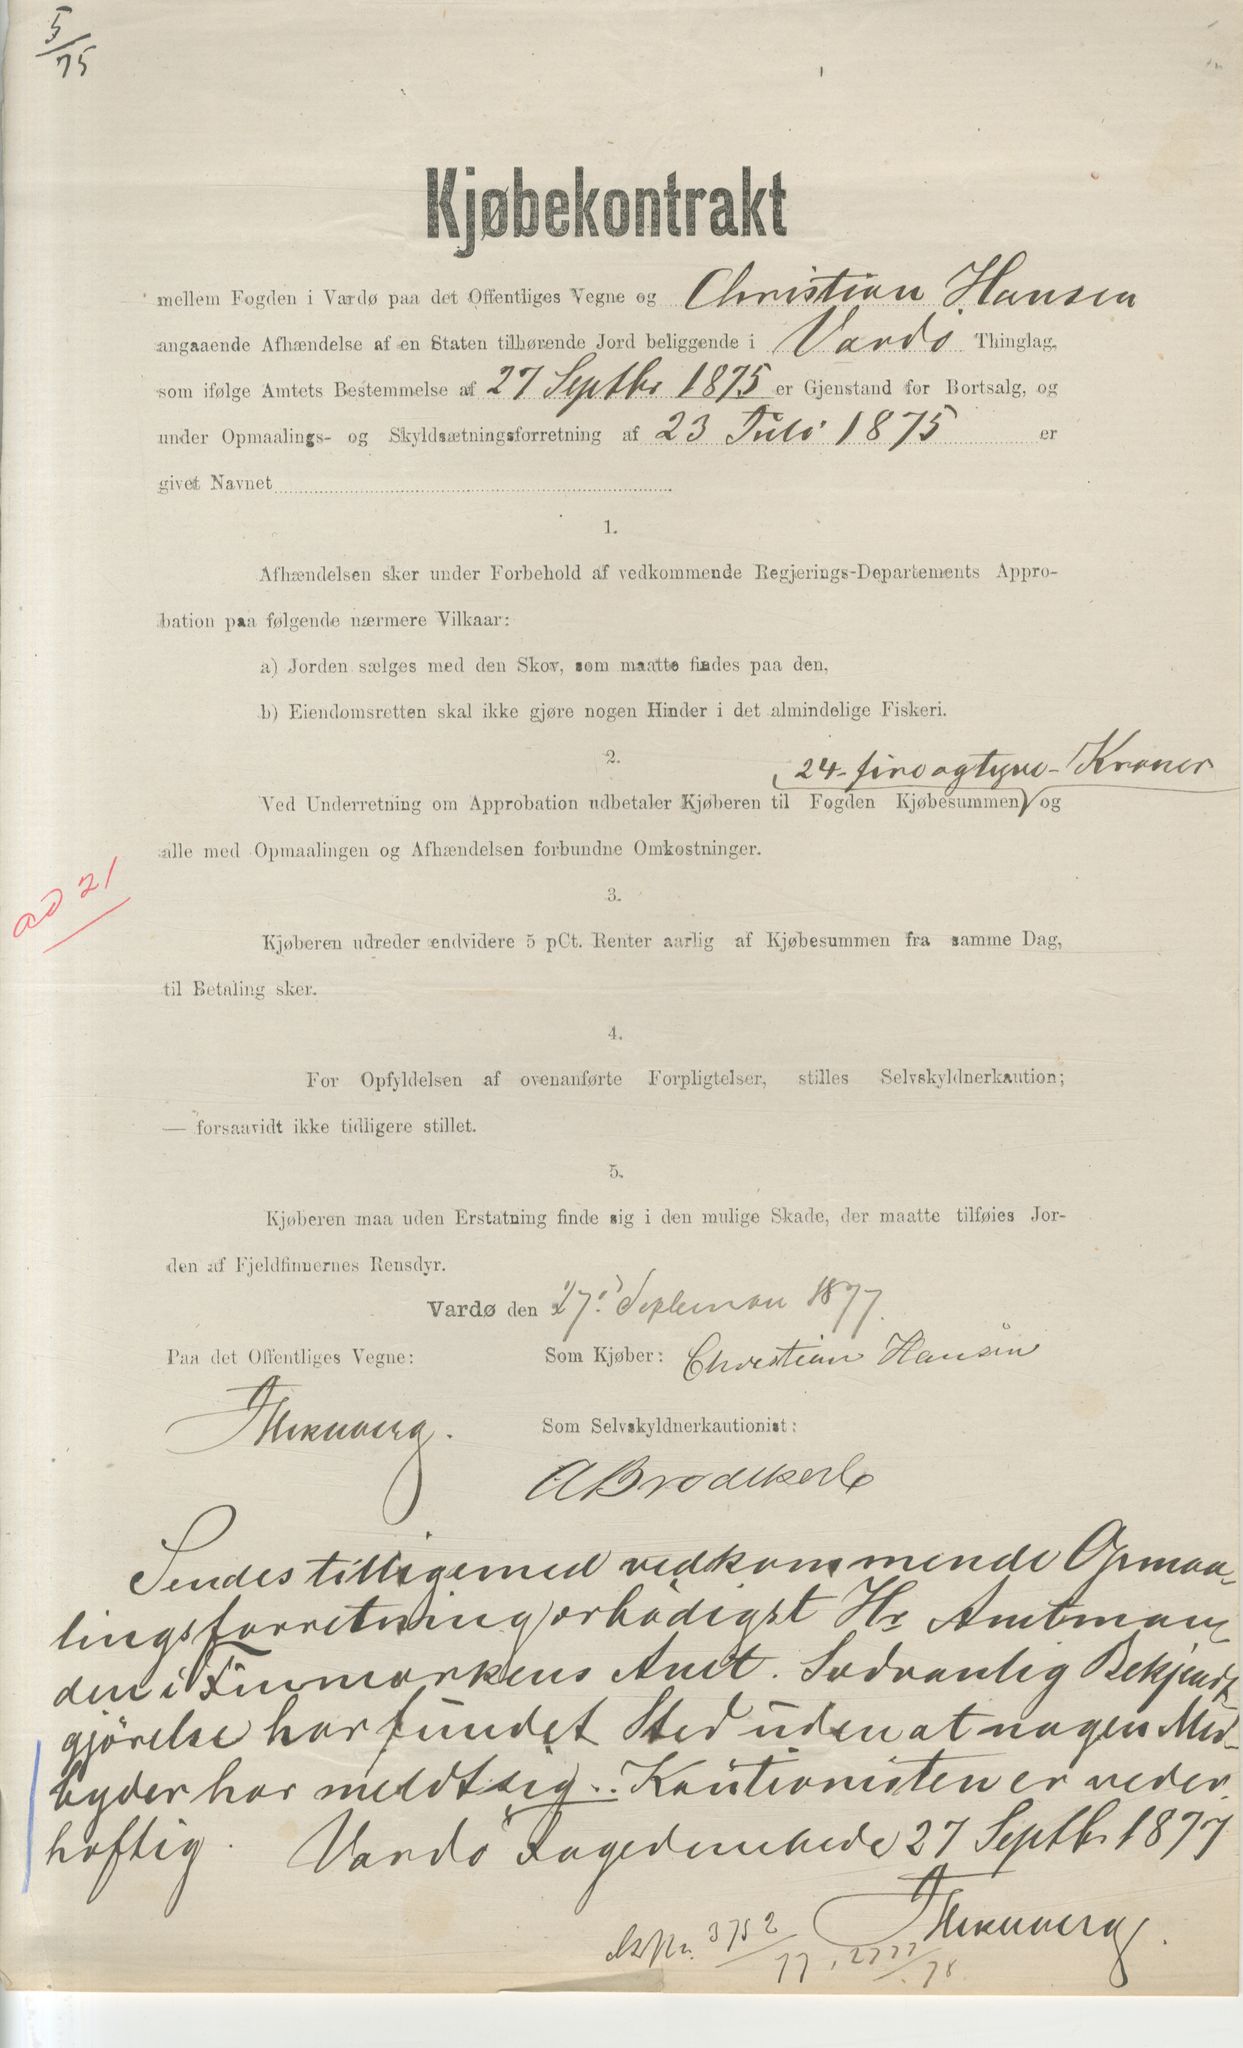 5/75
Kjøbekontrakt
mellem Fogden i Vardø paa det Offentliges Vegne og Christian Hansen
angaaende Afhændelse af en Staten tilhørende Jord beliggende i Vardö Thinglag,
som ifølge Amtets Bestemmelse af 27 Septbr 1875 er Gjenstand for Bortsalg, og
under Opmaalings- og Skyldsætningsforretning af 23 Juli 1875 er
givet Navnet
1.
Afhændelsen sker under Forbehold af vedkommende Regjerings-Departements Appro-
bation paa følgende nærmere Vilkaar:
a) Jorden sælges med den Skov, som maatte findes paa den,
b) Eiendomsretten skal ikke gjøre nogen Hinder i det almindelige Fiskeri.
2.
24 - fireogtyve - Kroner
Ved Underretning om Approbation udbetaler Kjøberen til Fogden Kjøbesummen og
alle med Opmaalingen og Afhændelsen forbundne Omkostninger.
ad 21
3.
Kjøberen udreder endvidere 5 pCt. Renter aarlig af Kjøbesummen fra samme Dag,
til Betaling sker.
4.
For Opfyldelsen af ovenanførte Forpligtelser, stilles Selvskyldnerkaution;
— forsaavidt ikke tidligere stillet.
5.
Kjøberen maa uden Erstatning finde sig i den mulige Skade, der maatte tilføies Jor-
den af Fjeldfinnernes Rensdyr.
Vardø den 27. September 1877.
Paa det Offentliges Vegne: Som Kjøber: Christian Hansen
Som Selvskyldnerkautionist:
A Brodtkorb
Sendes tilligemed vedkommende Opmaa-
lingsforretning erbödigst Hr Amtman-
den i Finmarkens Amt. Sædvanlig Bekjendt
gjörelse har fundet Sted uden at nogen Med-
byder har meldt sig. Kautionisten er veder-
hæftig. Vardö Fogedembede 27 Septbr 1877
3752/77, 2777/78